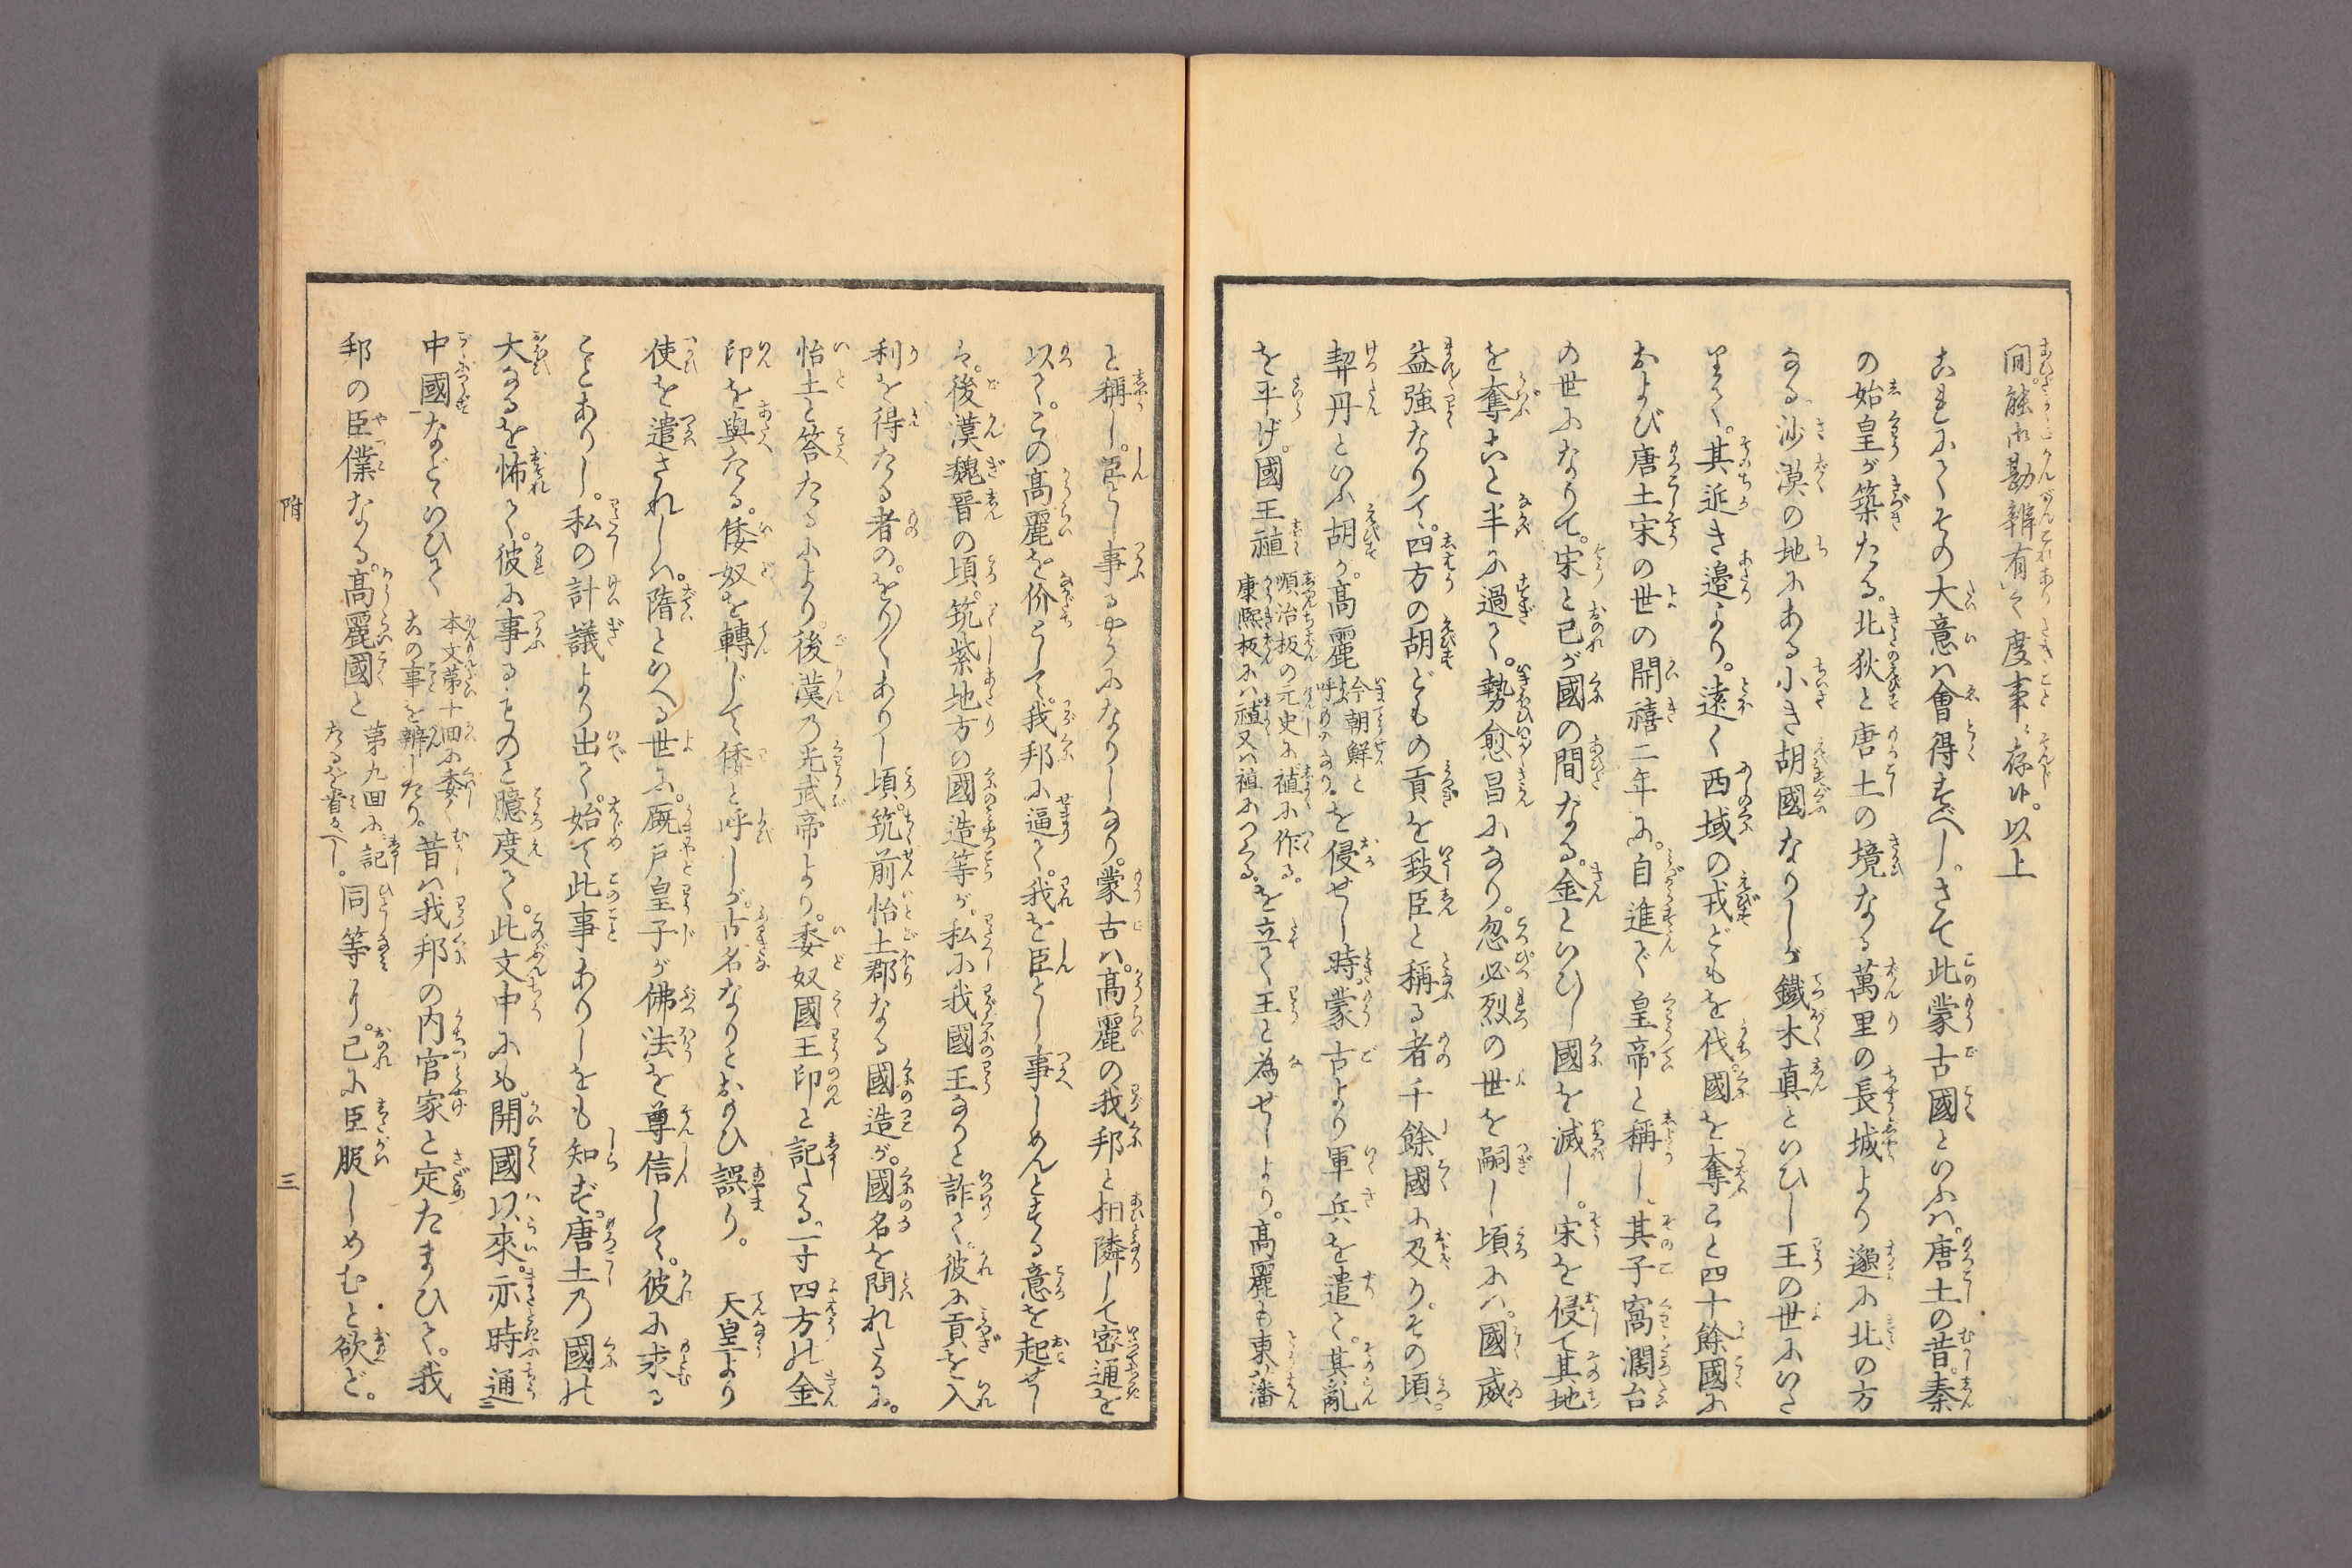 間。能御勘辨有て度事ニ存候。以上
これにてその大意は會得すべし。さて此蒙古國といふは。唐土の昔。秦
の始皇が築たる。北狄と唐土の境なる萬里の長城より遙に北の方
なる沙漠の地にある小き胡國なりしが鐵木真といひし王の世にいた
りて。其近き邊より。遠く西域の戎どもを伐。國を奪こと四十餘國に
および唐土宋の世の開禧二年に。自進で皇帝と稱し。其子窩濶台
の世になりて。宋と己が國の間なる。金といひし國を滅し。宋を侵て其地
を奪こと半に過て。勢愈昌になり。忽必烈の世を嗣し頃には。國威
益強なりて。四方の胡どもの貢を致臣と稱る者千餘國に及り。その頃
契丹といふ胡が。高麗 今朝鮮と呼ものなり を侵せし時。蒙古より軍兵を遣て。其亂
を平げ。國王禃 順治板の元史に禃に作る。康熙板には禃又は禎につくる。を立て王と為せしより。高麗も東の藩
と稱し。臣とし事るやうになりしなり。蒙古は。高麗の我邦と相隣して密通を
以て。この高麗を价として。我邦に逼て。我を臣とし事しめんとする意を起せし
は。後漢魏晉の頃。筑紫地方の國造等が。私に我國王なりと詐て。彼に貢を入
利を得たる者の。をり〳〵ありし頃。筑前怡土郡なる國造が。國名を問れたるに。
怡土と答たるにより。後漢乃光武帝より。委奴國王印と記たる。一寸四方の金
印を與たる。倭奴を轉じて倭と呼しが。古名なりとおもひ誤り。 天皇より
使を遣されしは。隋といへる世に。厩戸皇子が佛法を尊信して。彼に求る
ことありし。私の計議より出て。始て此事ありしをも知ず。唐土乃國の
大なるを怖て。彼に事るものと臆度て。此文中にも。開國以來。亦時通ニ
中國一などゝいひて 本文第十回に委くこの事を辨じたり。昔は我邦の内官家と定たまひて。我
邦の臣僕なる。高麗國と 第九回に記たるを看べし。同等り。己に臣服しめむと欲ど。
附
三